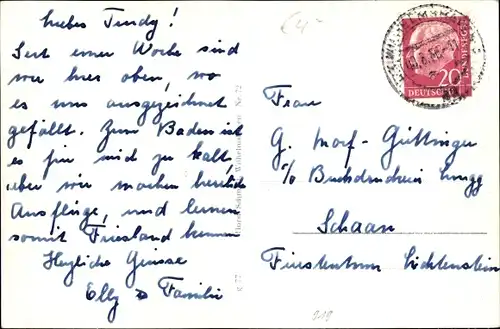 Liebes Trudy!
Seit einer Woche sind
wir hier oben, wo
es uns ausgezeichnet
gefällt. Zum Baden ist
es für mich zu kalt,
aber wir machen herrliche
Ausflüge, und lernen
somit Friesland kennen
Herzliche Grüsse
Elly & Familie
€4-
20
DEUTSCHE
BUNDESPOST
WILHELMSHAVEN
Frau
G. Morf-Güttinger
c/o Buchdruckerei Lingg
Schaan
Fürstentum Lichtenstein
Wilhelmshaven
Nr. 72